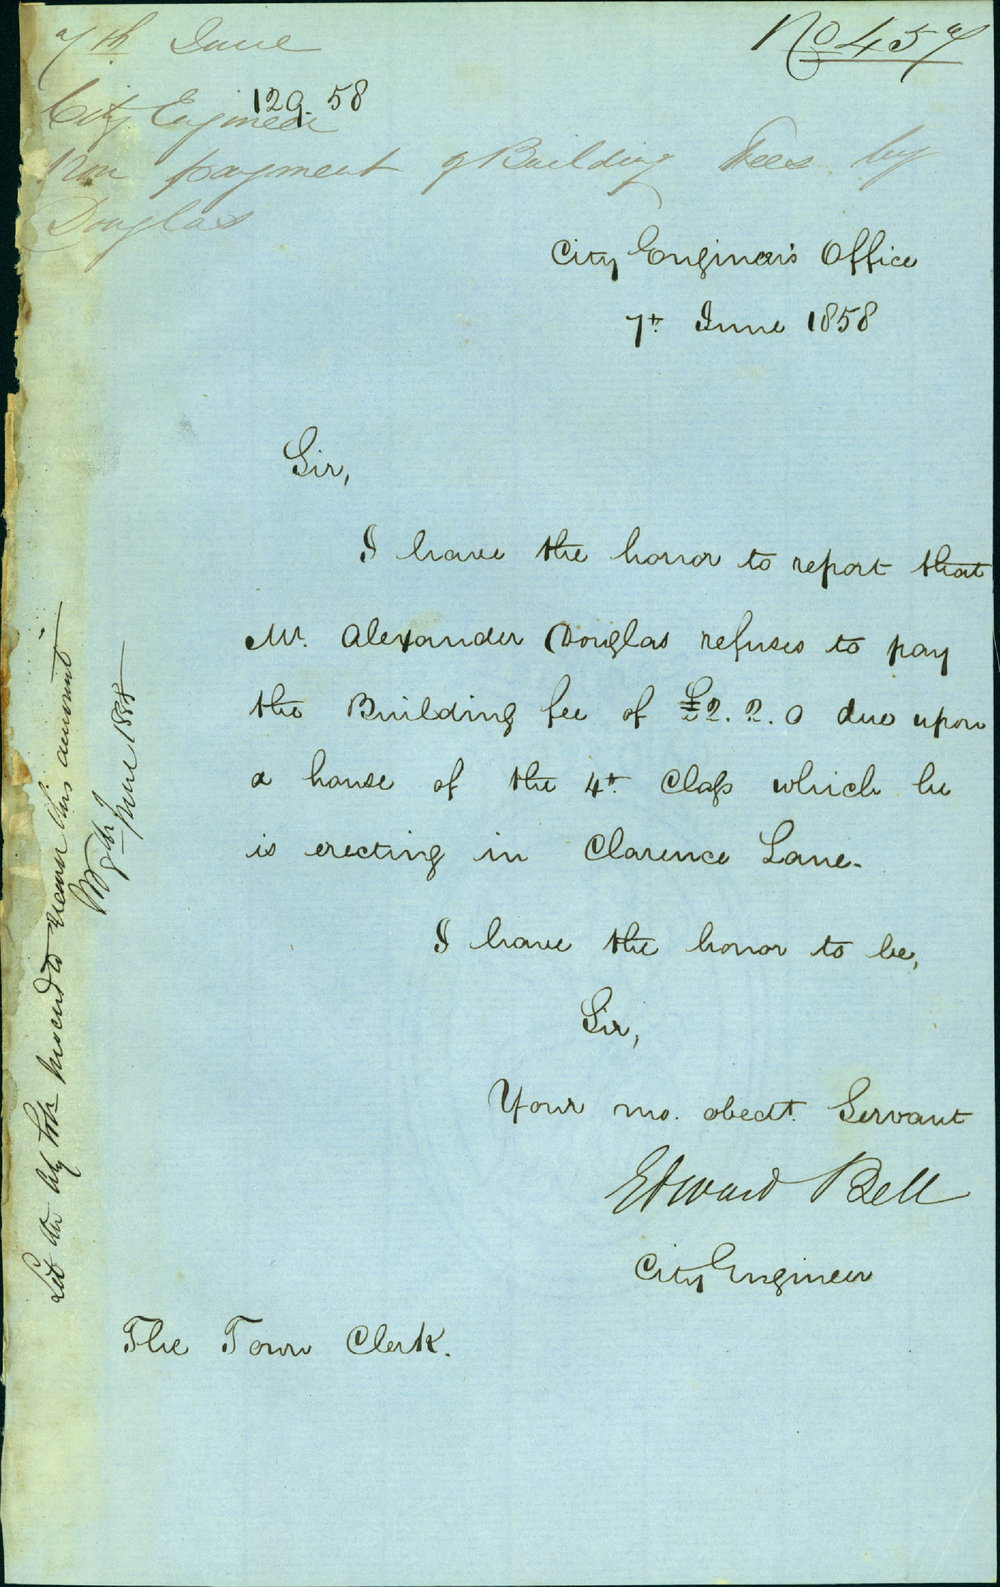 7th June
No 457
City Engineer
129. 58
Non payment of Building Fees by
Douglas
City Engineer's Office
7th June 1858
Sir,
I have the honor to report that
Mr. Alexander Douglas refuses to pay
the Building fee of £2. 2. 0 due upon
a house of the 4th Class which he
is erecting in Clarence Lane.
I have the honor to be,
Sir,
Your mo. obedt. Servant
Edward Bell
City Engineer
The Town Clerk.
Let the City Solr proceed to recover this amount
9th June 1858